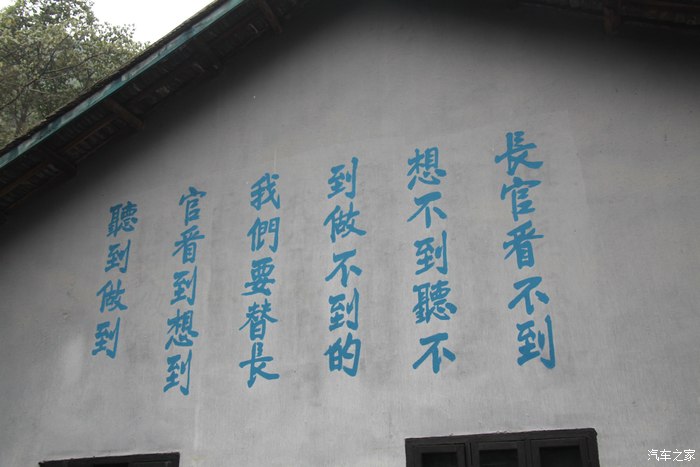 長官看不到
想不到聽不
到做不到的
我們要替長
官看到想到
聽到做到
汽车之家